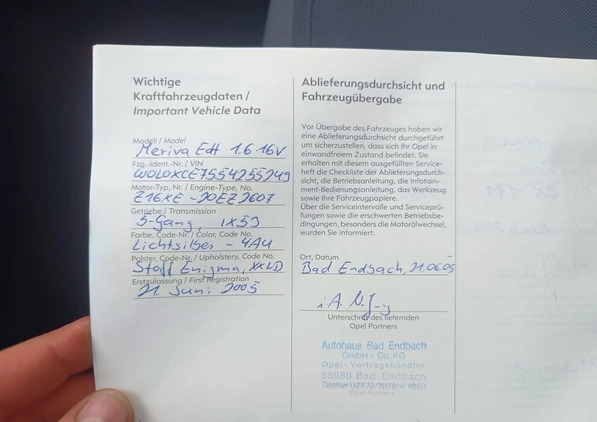 Wichtige
Kraftfahrzeugdaten /
Important Vehicle Data
Modell / Model
Meriva 1.6 16V
Fzg.-Ident.-Nr. / VIN
W0L0XCE7554255249
Motor-Typ, Nr. / Engine-Type, No.
Z16XE - 20EZ2607
Getriebe / Transmission
5-Gang, 1X53
Farbe, Code-Nr. / Color, Code No.
Lichtsilber - 4AU
Polster, Code-Nr. / Upholstery, Code No.
Stoff Enigma, XKLD
Erstzulassung / First Registration
21. Juni 2005
Ablieferungsdurchsicht und
Fahrzeugübergabe
Vor Übergabe des Fahrzeuges haben wir
eine Ablieferungsdurchsicht durchgeführt
um sicherzustellen, dass sich Ihr Opel in
einwandfreiem Zustand befindet. Sie
erhalten mit diesem ausgefüllten Service-
heft die Checkliste der Ablieferungsdurch-
sicht, die Betriebsanleitung, die Infotain-
ment-Bedienungsanleitung, das Werkzeug
sowie Ihre Fahrzeugpapiere.
Über die Serviceintervalle und Serviceprü-
fungen sowie die erschwerten Betriebsbe-
dingungen, besonders die Motorölwechsel,
wurden Sie informiert.
Ort, Datum
Bad Endbach, 21.06.05
i.A.
Unterschrift des liefernden
Opel Partners
Autohaus Bad Endbach
GmbH + Co. KG
Opel-Vertragshändler
35080 Bad Endbach
Opel Partners